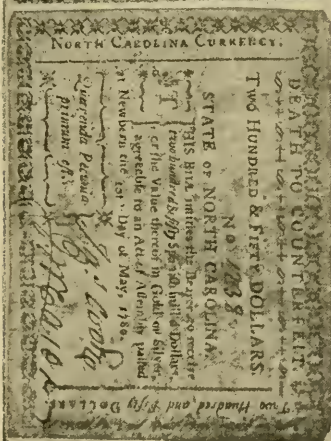 NORTH CAROLINA CURRENCY.
DEATH TO COUNTERFEIT.
TWO HUNDRED & FIFTY DOLLARS
No 1238
STATE OF NORTH CAROLINA.
THIS BILL intitles the Bearer to receive
two hundred & fifty Spanish milled Dollars,
or the Value thereof in Gold or Silver
agreeable to an Act of Assembly passed
at Newbern the 10th Day of May, 1780.
Quaerenda Pecunia
primum est.
Two Hundred and Fifty DOLLARS.